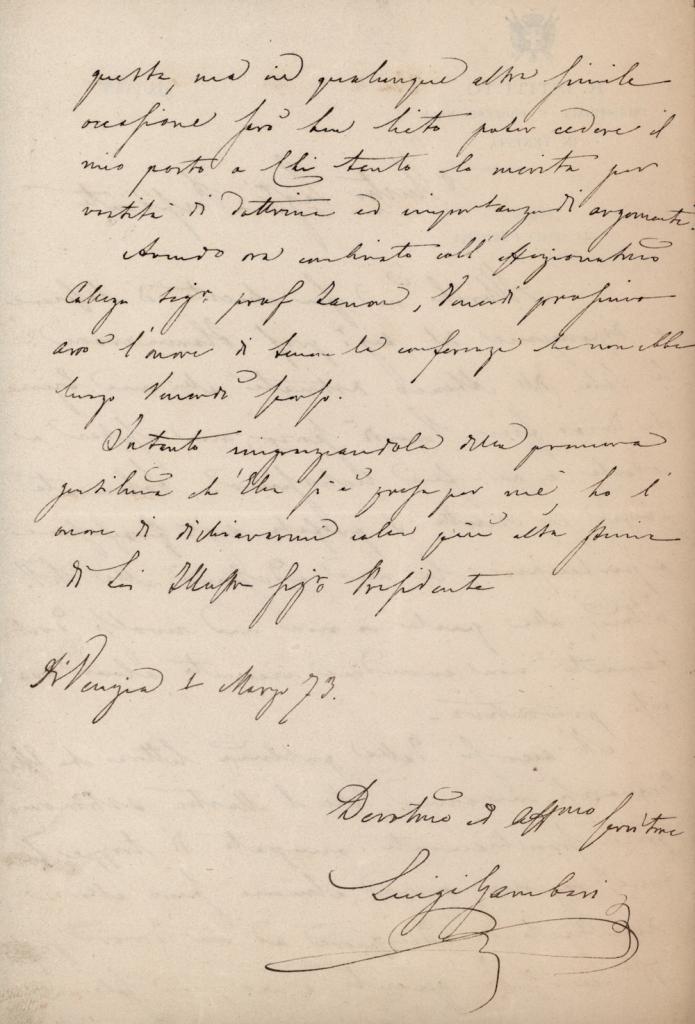 questa, ma in qualunque altra simile
occasione sarò ben lieto poter cedere il
mio posto a Chi tanto lo merita per
vastità di dottrina ed importanza di argomenti.
Avendo ora combinato coll' Affezionatmo
Collega Sigr. prof Zanon, Venerdì prossimo
avrò l'onore di tenere la conferenza che non ebbe
luogo Venerdì scorso.
Intanto ringraziandola della premura
gentilma ch'Ella si è presa per me, ho l'
onore di dichiararmi colla più alta stima
di Lei Illustre Sigr Presidente
Di Venezia 1 Marzo 73.
Devotmo ed Affmo servitore
Luigi Gambari